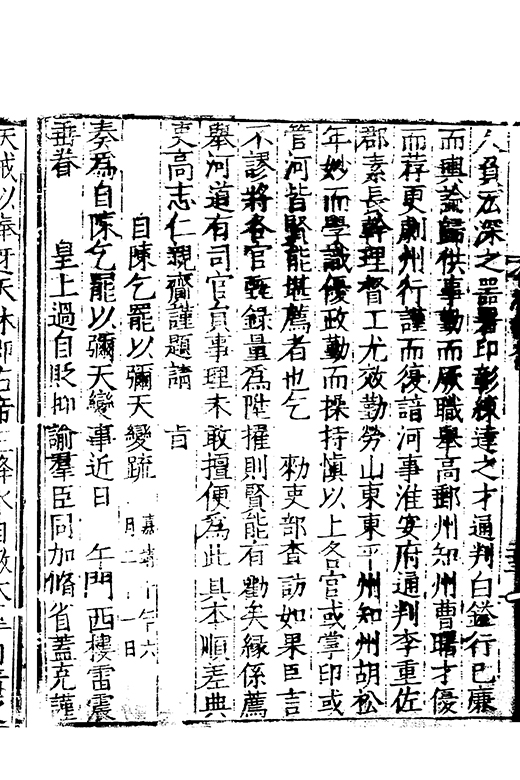 負宏深之器署印彰練達之才通判白鎰行已廉
而輿論歸供事勤而厥職舉高郵州知州曹曙才優
而荐更劇州行謹而復諳河事淮安府通判李重佐
郡素長幹理督工尤效勤勞山東東平州知州胡松
年妙而學識優政勤而操持慎以上各官或掌印或
管河皆賢能堪薦者也乞　勑吏部查訪如果臣言
不謬將各官甄錄量為陞擢則賢能有勸矣緣係薦
舉河道有司官員事理未敢擅便為此具本順差典
吏高志仁親齎謹題請　旨
自陳乞罷以彌天變疏　嘉靖十年六月二十一日
奏為自陳乞罷以彌天變事近日　午門西樓雷震
垂眷　皇上過自貶抑諭羣臣同加脩省蓋克謹
天戒以奉